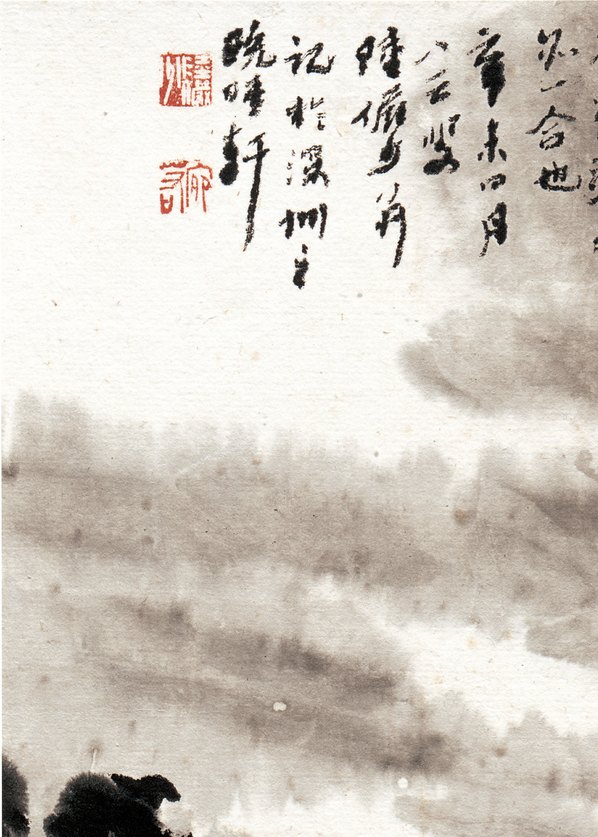 必一合也
辛未四月
八二叟
陸儼少并
記於深圳之
晚晴軒